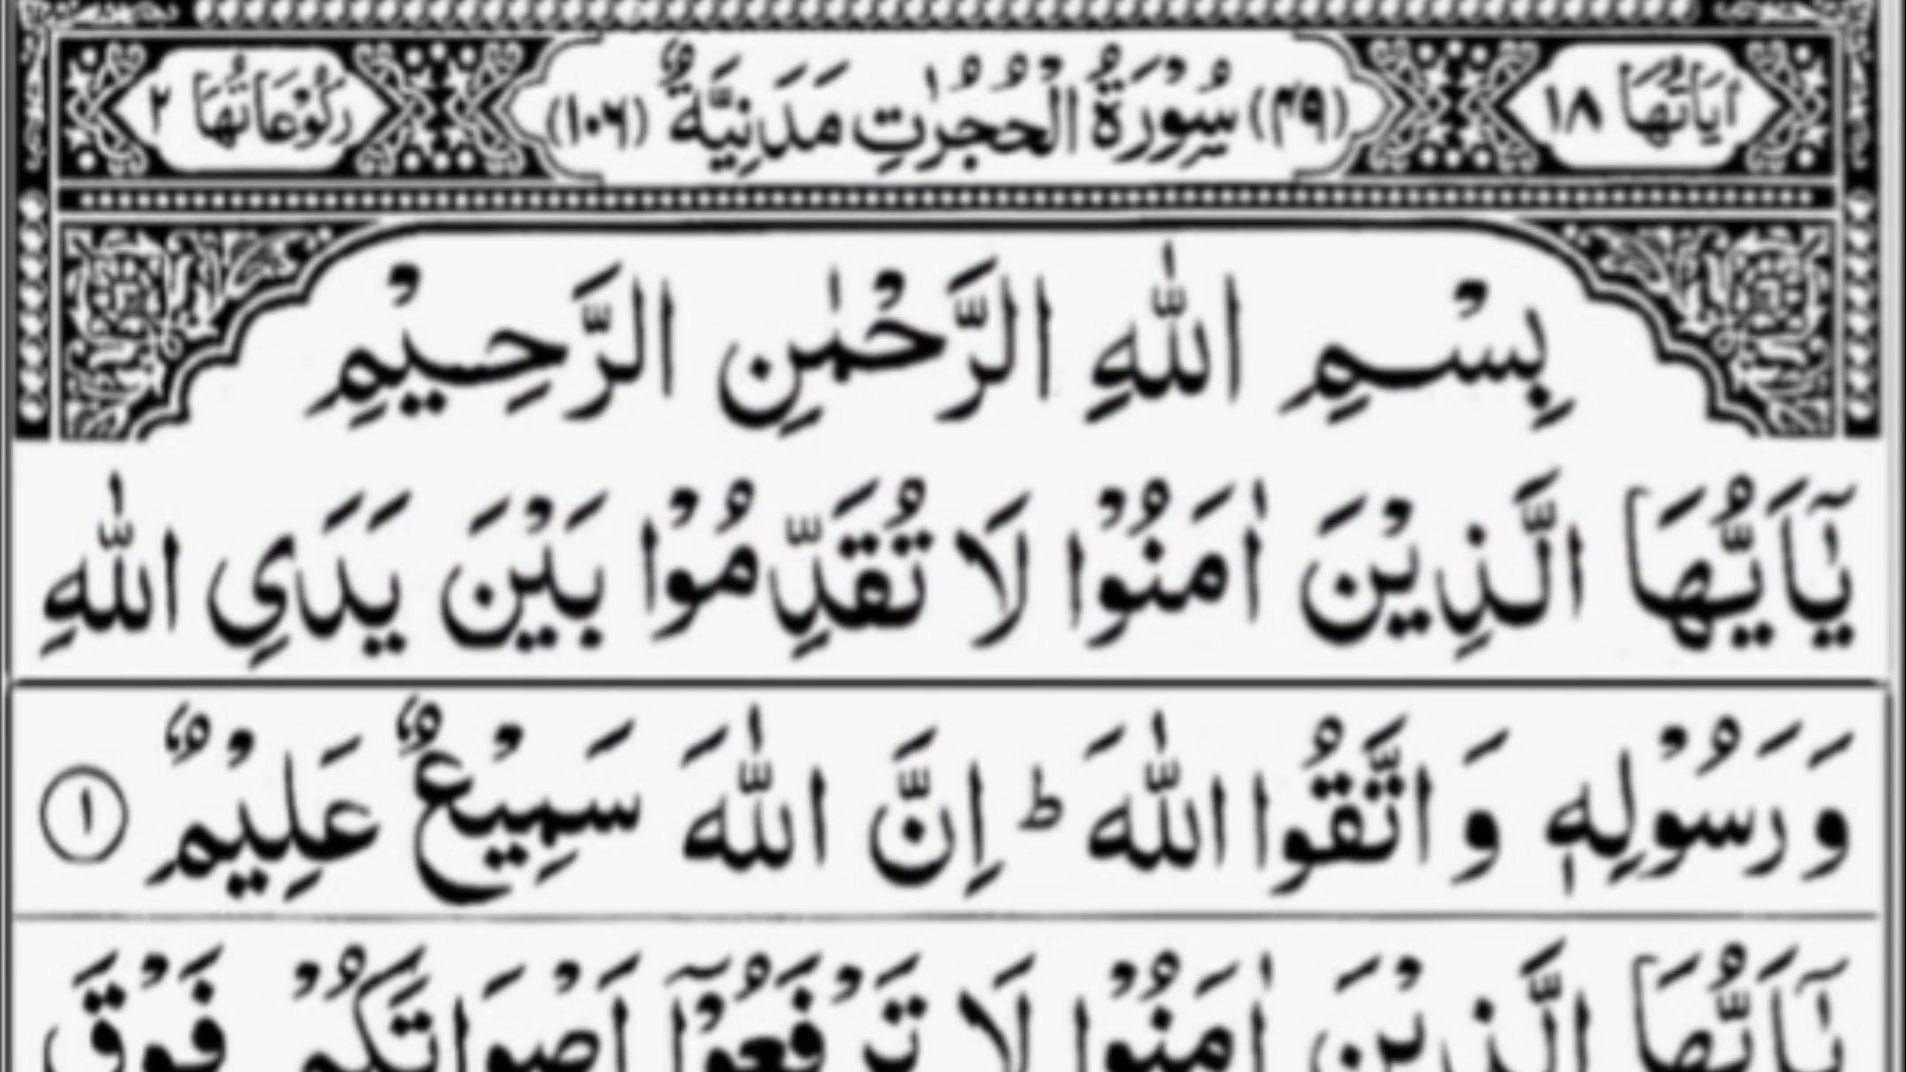 اٰيَاتُهَا ١٨ (٤٩) سُوْرَةُ الْحُجُرٰتِ مَدَنِيَّةٌ (١٠٦) رُكُوْعَاتُهَا ٢
بِسْمِ اللّٰهِ الرَّحْمٰنِ الرَّحِيْمِ
يٰٓاَيُّهَا الَّذِيْنَ اٰمَنُوْا لَا تُقَدِّمُوْا بَيْنَ يَدَيِ اللّٰهِ
وَ رَسُوْلِهٖ وَ اتَّقُوا اللّٰهَ ؕ اِنَّ اللّٰهَ سَمِيْعٌ عَلِيْمٌ ١
يٰٓاَيُّهَا الَّذِيْنَ اٰمَنُوْا لَا تَرْفَعُوْٓا اَصْوَاتَكُمْ فَوْقَ